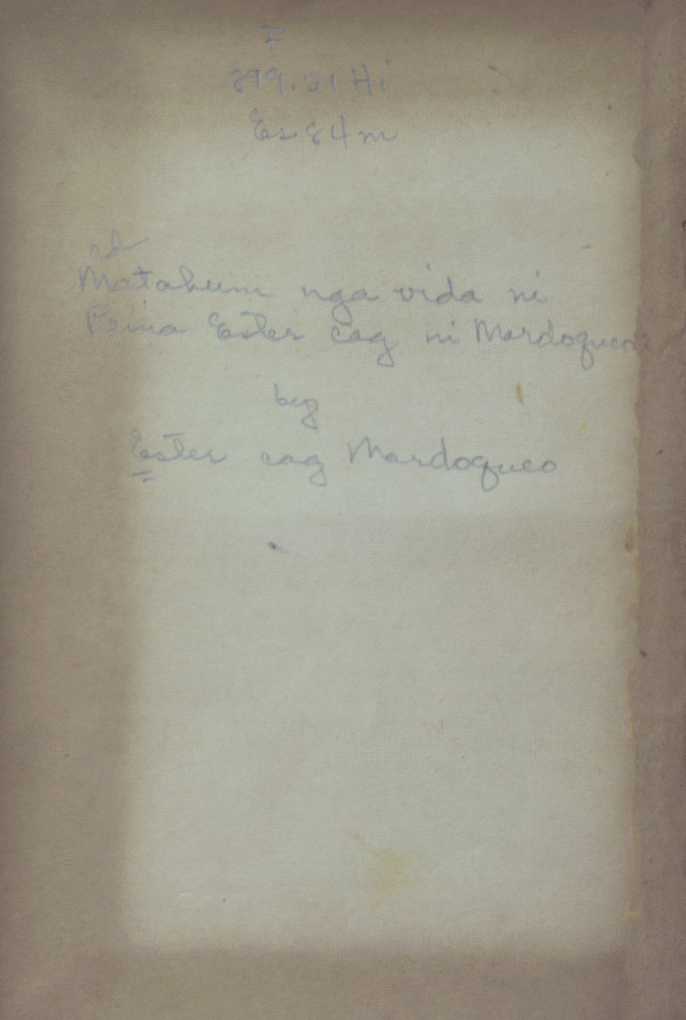 F
899.21 Hi
Es 84 m
Matahum nga vida ni
Reina Ester cag ni Mardoqueo
by
Ester cag Mardoqueo